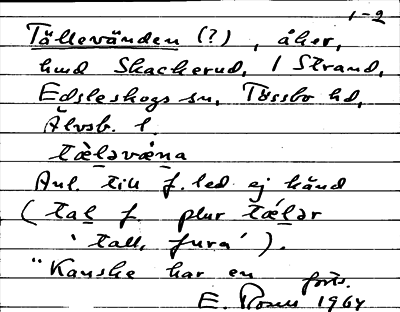 1-2
Tällevänden (?), åker,
hmd Skackerud, 1 Strand,
Edsleskogs sn, Tössbo hd,
Älvsb. l.
tæ̀ləvæ̀na
Anl. till f. led ej känd
(tal f. plur tǽlər
'tall, fura').
"Kanske har en
forts.
E. Rosen 1964